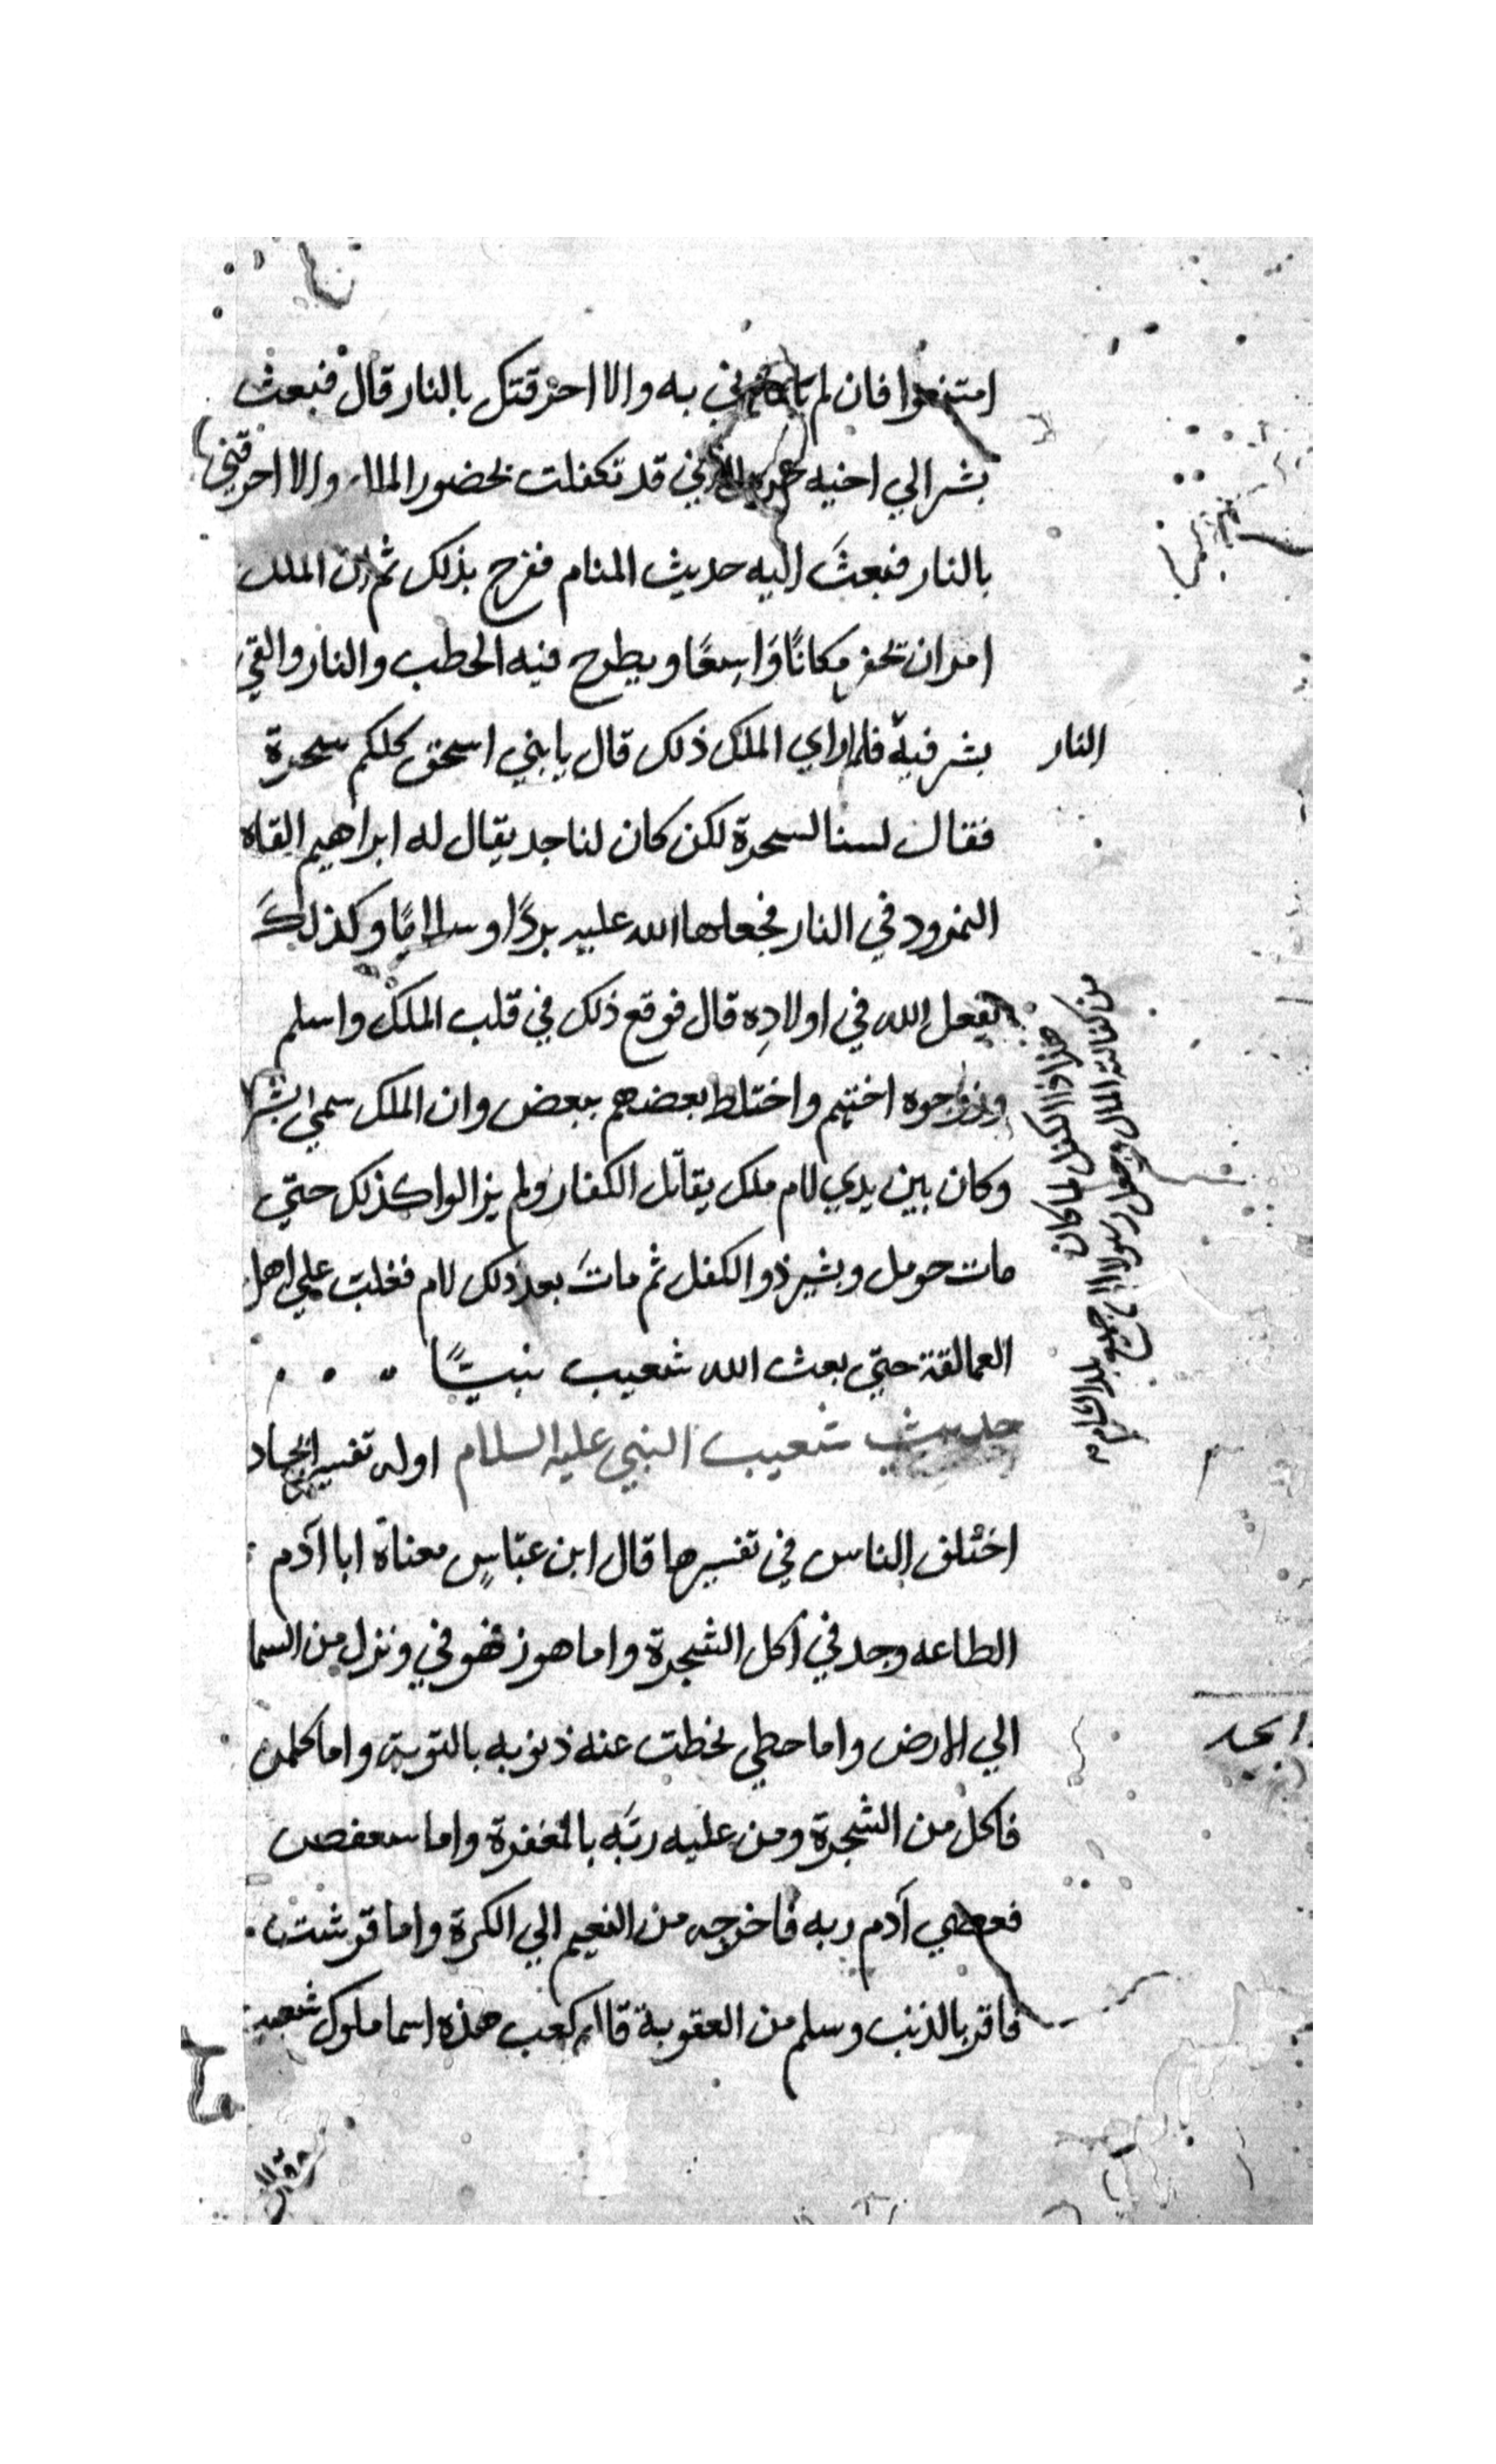 امتنعوا فان لم به والا احرقتكل بالنار قال فبعث
بشر الي اخيه قد تكفلت بحضور الملاء والا احرقتني
بالنار فبعثَ اليه حديث المنام ففرح بذلك ثم ان الملك
امر ان تحفر مكانًا وَاسِعًا ويطرح فيه الحطب والنار والقي
بشر فيه فلما راي الملك ذلك قال يا بني اسحق كلكم سحرة
النار
فقال لسنا لسحرة لكن كان لنا جد يقال له ابراهيم القاه
النمرود في النار فجعلها الله عليه بردًا وسلامًا وكذلكَ
يفعل الله في اولادِه قال فوقع ذلك في قلب الملك واسلم
وزوجوه اختهم واختلط بعضهم ببعض وان الملك سمي بشر
وكان بين يدي لام ملك يقاتل الكفار ولم يزالوا كذلك حتي
مات حومل وبشير ذو الكفل ثم ماتَ بعد ذلك لام فغلبت علي اهل
العمالقة حتي بعث الله شعيب نبيًا
حديث شعيب النبي عليه السلام اوله تفسير
اختلف الناس في تفسيرها قال ابن عبّاسٍ معناهُ ابا آدم
الطاعه وجد في اكل الشجرة واما هوز فهو في ونزل من السما
الي الارض واما حطي فحطت عنه ذنوبه بالتوبة واما كلمن
ابجد
فاكل من الشجرة ومن عليه ربّه بالمغفرة واما سعفص
فعصي آدم ربه فاخرجه من النعيم الي الكرة واما قرشت
فاقر بالذنب وسلم من العقوبة قال كعب هذه اسما ملوك شعيب